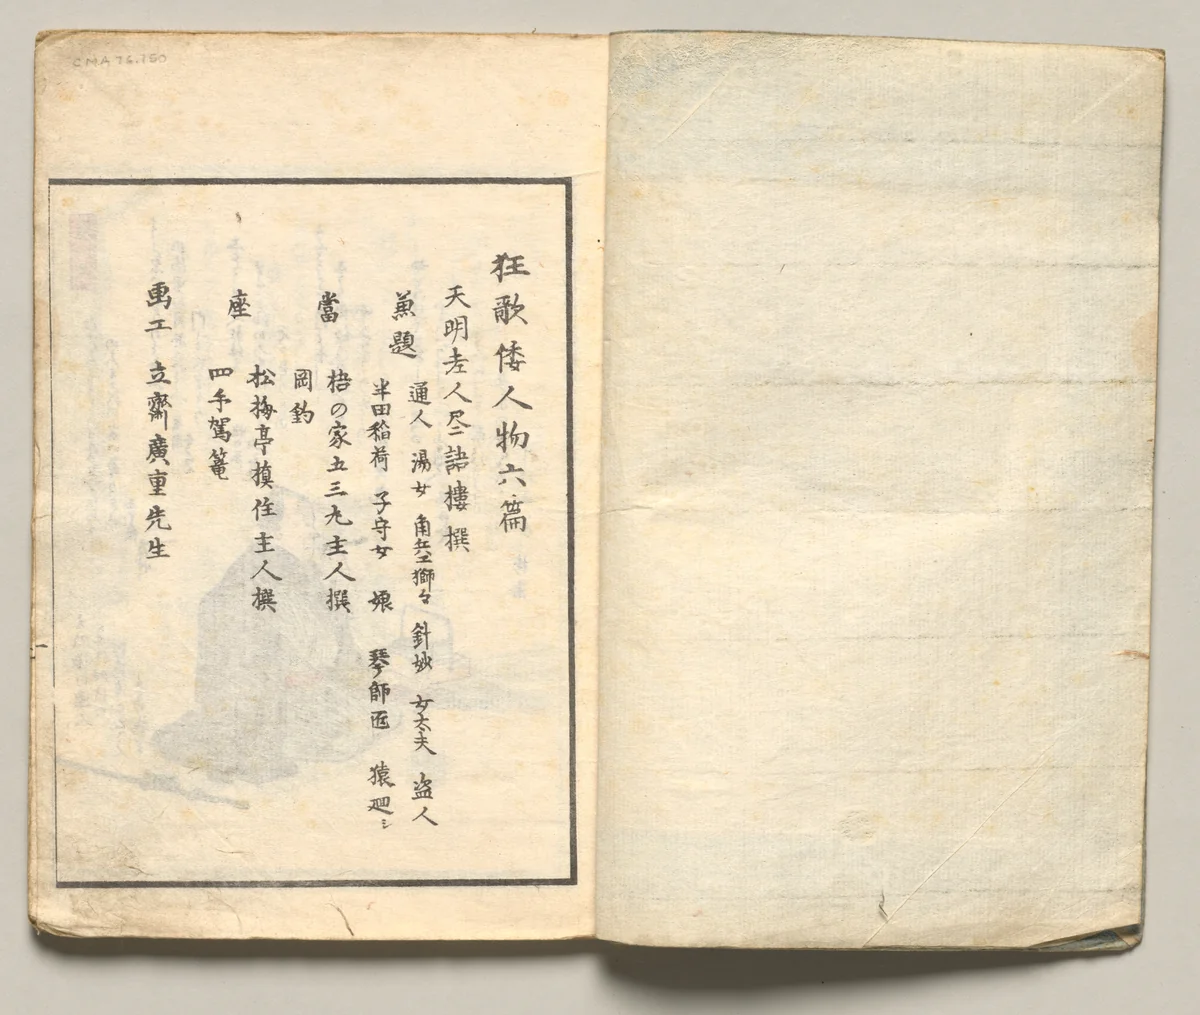 狂歌倭人物六篇
天明老人尽語樓撰
兼題
通人 湯女 角兵ヱ獅々 針妙 女太夫 盗人
半田稲荷 子守女 娘 琴師匠 猿廻シ
當
梧の家五三九主人撰
岡釣
座
松梅亭槙住主人撰
四手駕篭
畫工 立齋廣重先生
CMA 76.150